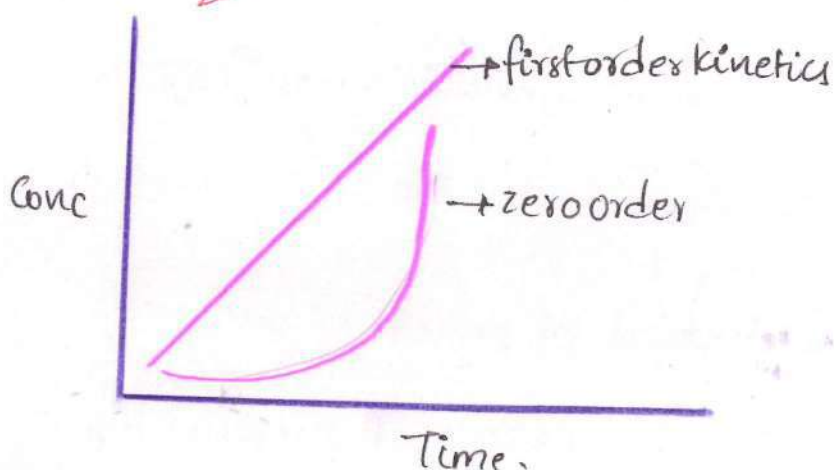 → firstorder kinetics
Conc
→ zero order
Time.